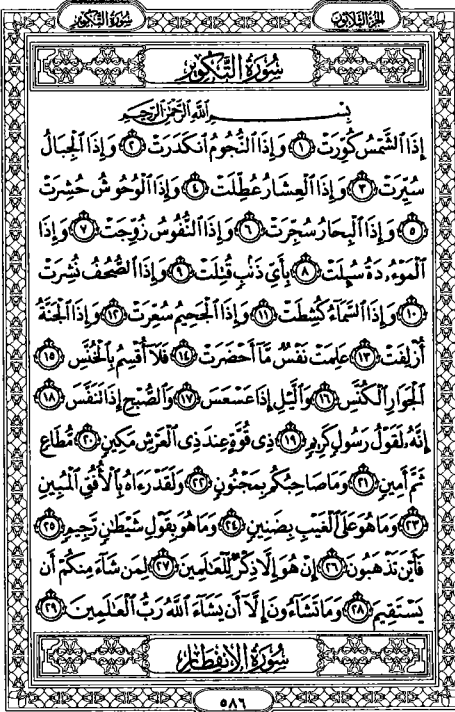 سُورَةُ التَّكْوِيرِ
الجُزءُ الثَّلَاثُونَ
سُورَةُ التَّكْوِيرِ
بِسْمِ اللَّهِ الرَّحْمَنِ الرَّحِيمِ
إِذَا ٱلشَّمْسُ كُوِّرَتْ ۝١ وَإِذَا ٱلنُّجُومُ ٱنكَدَرَتْ ۝٢ وَإِذَا ٱلْجِبَالُ
سُيِّرَتْ ۝٣ وَإِذَا ٱلْعِشَارُ عُطِّلَتْ ۝٤ وَإِذَا ٱلْوُحُوشُ حُشِرَتْ
۝٥ وَإِذَا ٱلْبِحَارُ سُجِّرَتْ ۝٦ وَإِذَا ٱلنُّفُوسُ زُوِّجَتْ ۝٧ وَإِذَا
ٱلْمَوْءُۥدَةُ سُئِلَتْ ۝٨ بِأَيِّ ذَنۢبٍ قُتِلَتْ ۝٩ وَإِذَا ٱلصُّحُفُ نُشِرَتْ
۝١٠ وَإِذَا ٱلسَّمَآءُ كُشِطَتْ ۝١١ وَإِذَا ٱلْجَحِيمُ سُعِّرَتْ ۝١٢ وَإِذَا ٱلْجَنَّةُ
أُزْلِفَتْ ۝١٣ عَلِمَتْ نَفْسٌ مَّآ أَحْضَرَتْ ۝١٤ فَلَآ أُقْسِمُ بِٱلْخُنَّسِ ۝١٥
ٱلْجَوَارِ ٱلْكُنَّسِ ۝١٦ وَٱلَّيْلِ إِذَا عَسْعَسَ ۝١٧ وَٱلصُّبْحِ إِذَا تَنَفَّسَ ۝١٨
إِنَّهُۥ لَقَوْلُ رَسُولٍ كَرِيمٍ ۝١٩ ذِى قُوَّةٍ عِندَ ذِى ٱلْعَرْشِ مَكِينٍ ۝٢٠ مُّطَاعٍ
ثَمَّ أَمِينٍ ۝٢١ وَمَا صَاحِبُكُم بِمَجْنُونٍ ۝٢٢ وَلَقَدْ رَءَاهُ بِٱلْأُفُقِ ٱلْمُبِينِ
۝٢٣ وَمَا هُوَ عَلَى ٱلْغَيْبِ بِضَنِينٍ ۝٢٤ وَمَا هُوَ بِقَوْلِ شَيْطَٰنٍ رَّجِيمٍ ۝٢٥
فَأَيْنَ تَذْهَبُونَ ۝٢٦ إِنْ هُوَ إِلَّا ذِكْرٌ لِّلْعَٰلَمِينَ ۝٢٧ لِمَن شَآءَ مِنكُمْ أَن
يَسْتَقِيمَ ۝٢٨ وَمَا تَشَآءُونَ إِلَّآ أَن يَشَآءَ ٱللَّهُ رَبُّ ٱلْعَٰلَمِينَ ۝٢٩
سُورَةُ الِانفِطَارِ
٥٨٦